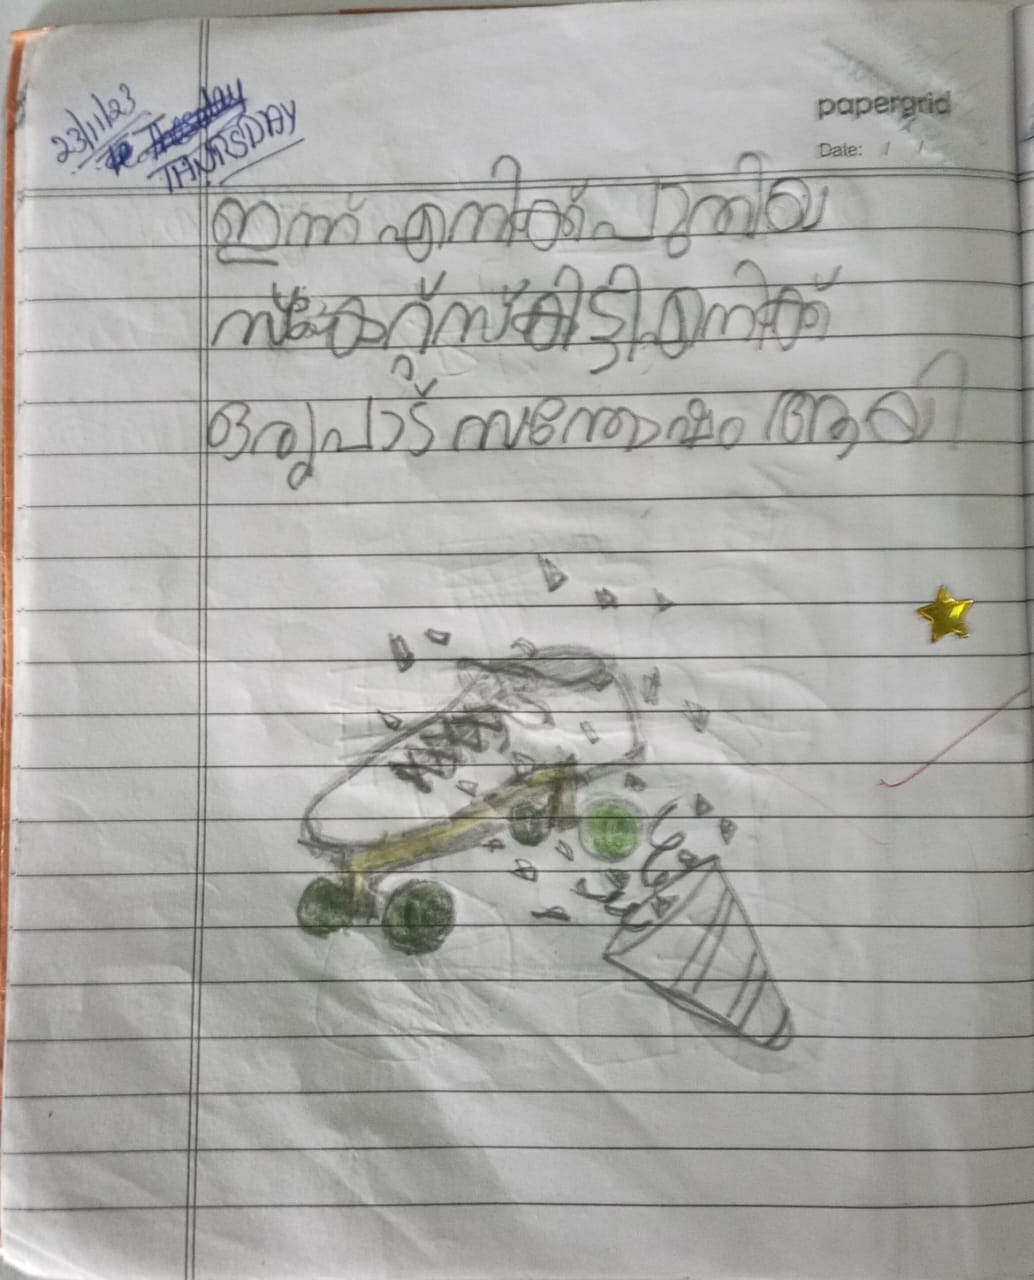 papergrid
Date: / /
23/11/23
THURSDAY
ഇന്ന് എനിക്ക് പുതിയ
സ്കേറ്റ്സ് കിട്ടി എനിക്ക്
ഒരുപാട് സന്തോഷം ആയി